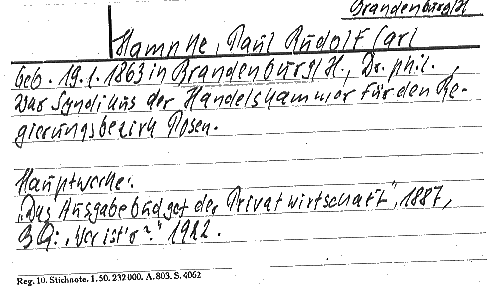 Brandenburg/H
Hamnke, Paul Rudolf Carl
geb. 19.1.1863 in Brandenburg/H., Dr. phil.
War Syndikus der Handelskammer für den Re-
gierungsbezirk Posen.
Hauptwerke:
„Das Ausgabebudget der Privatwirtschaft", 1887,
BQ: „Wer ist's?" 1922.
Reg. 10. Stichnote. 1. 50. 232000. A. 803. S. 4062